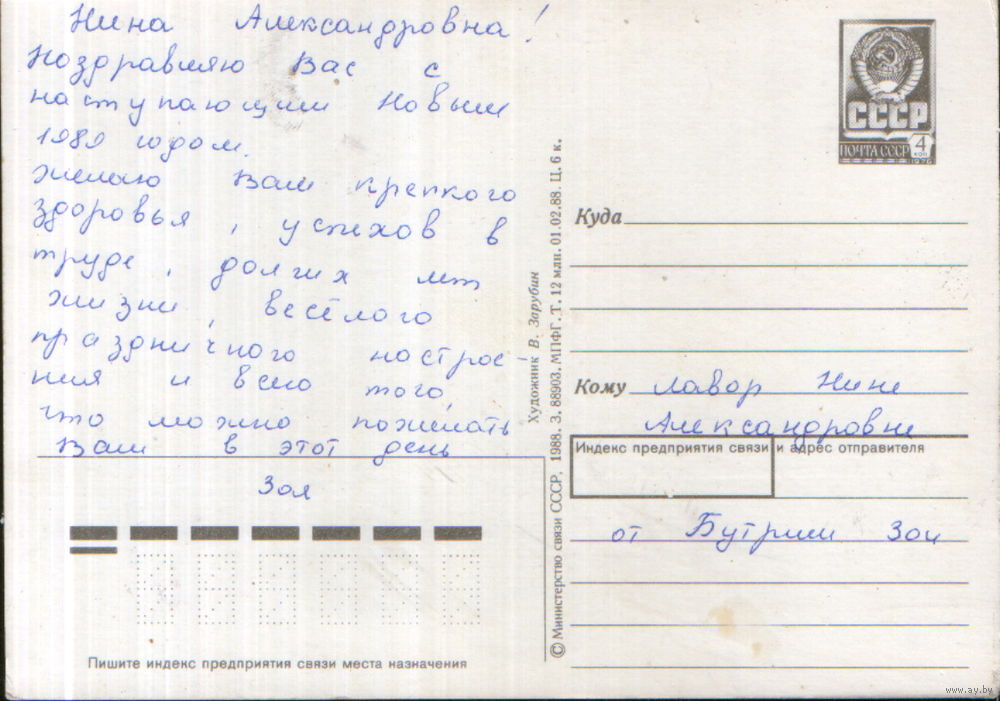 Нина Александровна!
Поздравляю Вас с
наступающим Новым
1989 годом.
Желаю Вам крепкого
здоровья, успехов в
труде, долгих лет
жизни, весёлого
праздничного настрое-
ния и всего того,
что можно пожелать
Вам в этот день
Зоя
Пишите индекс предприятия связи места назначения
Художник В. Зарубин
© Министерство связи СССР, 1988. З. 88903. МПФГ. Т. 12 млн. 01.02.88. Ц. 6 к.
СССР
ПОЧТА СССР 4
КОП
1976
Куда
Кому Лавор Нине
Александровне
Индекс предприятия связи и адрес отправителя
от Бутрим Зои
www.ay.by